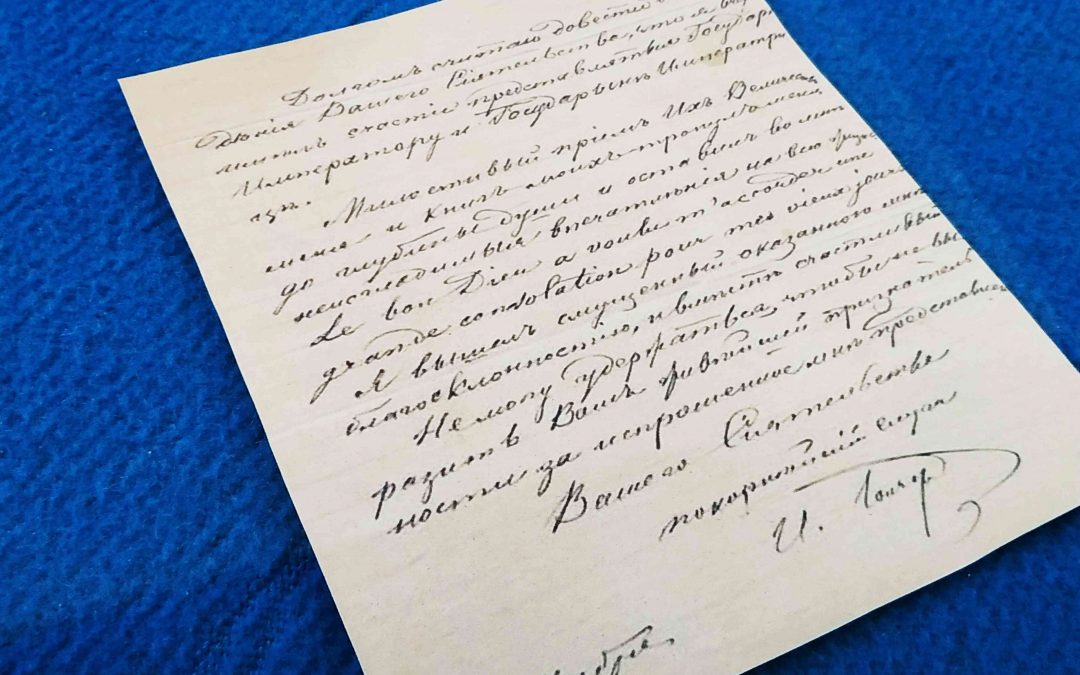 Долгомъ считаю довести до
дѣнія Вашего Сіятельства, что я
имѣлъ счастіе представляться Государю
Императору и Государынѣ Императри
цѣ.
Милостивый пріемъ Ихъ Величес
меня и книгъ моихъ тронулъ меня
до глубины души и оставилъ во мнѣ
неизгладимыя впечатлѣнія на всю
Le bon Dieu a voulu m'accorder une
grande consolation pour mes vieux jours
Я вышелъ смущенный оказанною мнѣ
благосклонностію, и вмѣстѣ счастливый
Не могу удержаться, чтобы не вы
разить Вамъ живѣйшей признатель
ности за испрошенное мнѣ представле
Вашего Сіятельства
покорнѣйшій слуга
И. Гончар
ября